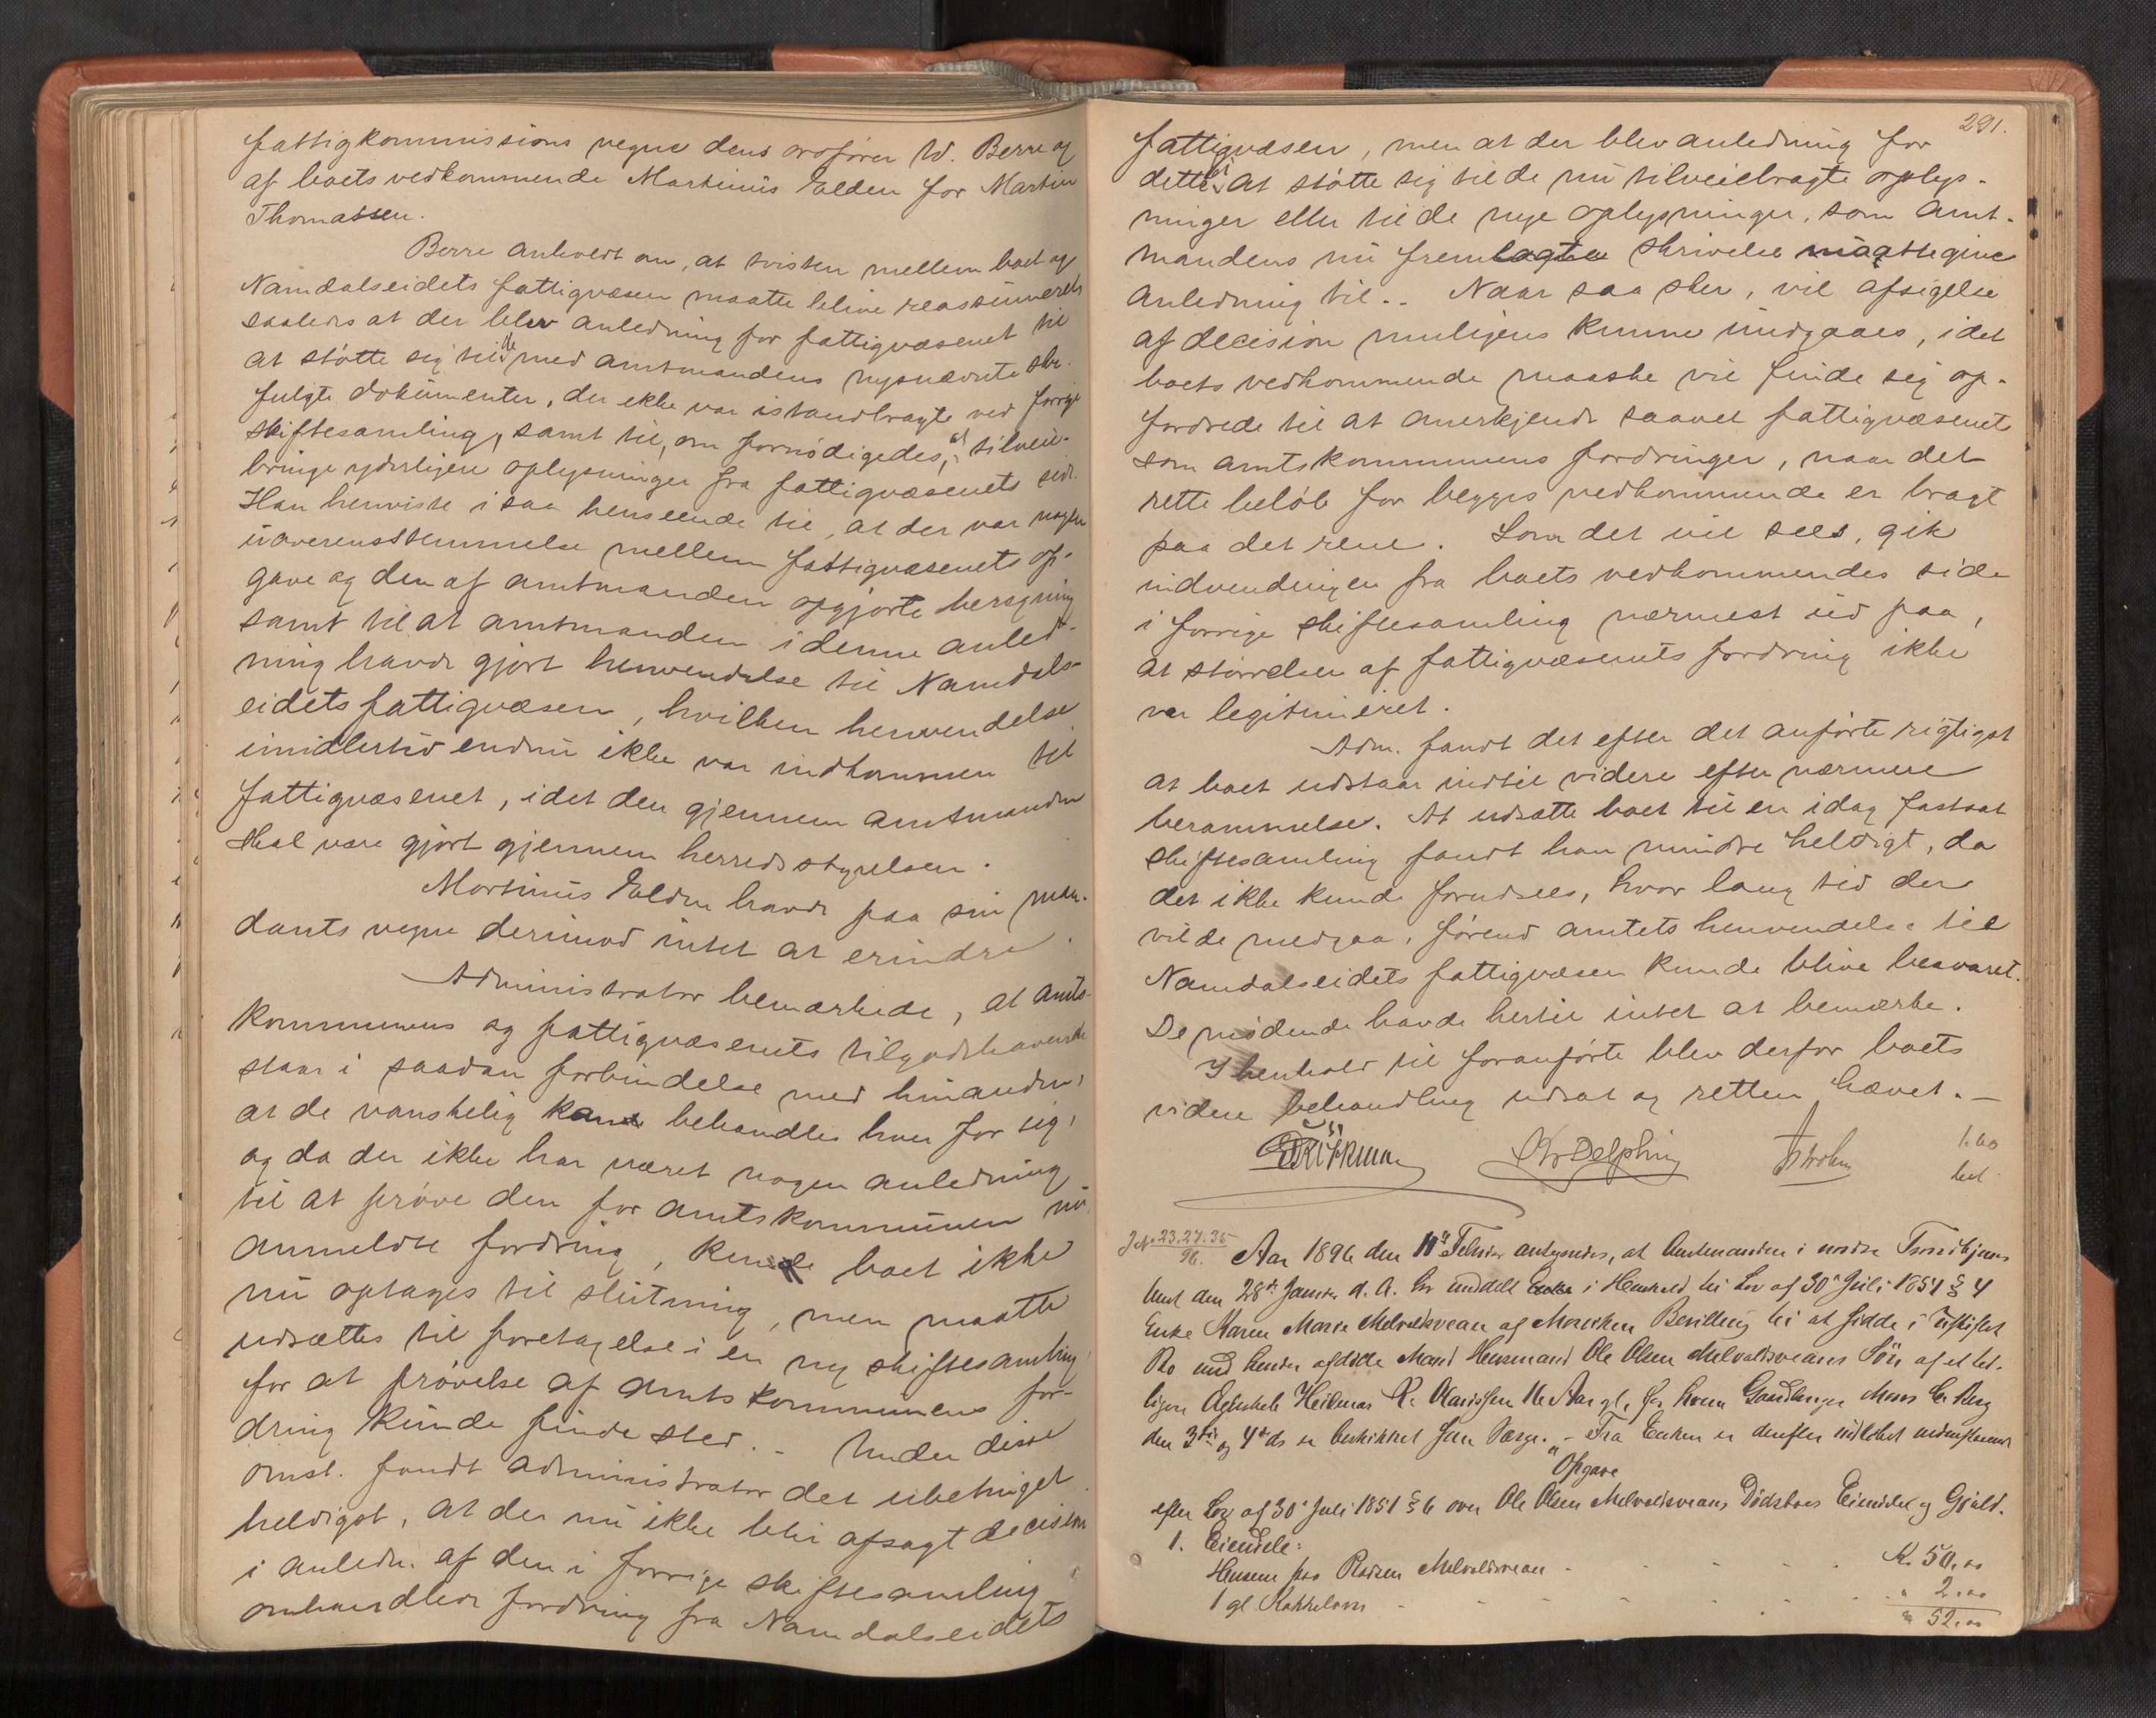 fattigkommissions vegne dens ordfører W. Berre og
af boets vedkommende Martinus Elden for Martin
Thomassen.
Berre anholdt om, at tvisten mellem boet og
Namdalseidets fattigvæsen maatte blive reassumeret
saaledes at der blev anledning for fattigvæsenet til
at støtte sig til de med amtmandens nysnævnte skr.
fulgte dokumenter, der ikke var istandbragte ved forrige
skiftesamling, samt til, om fornødigedes, at tilveie-
bringe yderligere oplysninger fra fattigvæsenets side.
Han henviste i saa henseende til, at der var nogen
uoverensstemmelse mellem fattigvæsenets op-
gave og den af amtmanden opgjorte beregning
samt til at amtmanden i denne anled-
ning havde gjort henvendelse til Namdals-
eidets fattigvæsen, hvilken henvendelse
imidlertid endnu ikke var indkommen til
fattigvæsenet, idet den gjennem amtmanden
skal være gjort gjennem herredsstyrelsen.
Martinus Elden havde paa sin man-
dants vegne derimod intet at erindre.
Administrator bemærkede, at amts-
kommunens og fattigvæsenets tilgodehavende
staar i saadan forbindelse med hinanden,
at de vanskelig kan behandles hver for sig,
og da der ikke har været nogen anledning
til at prøve den for amtskommunen nu
anmeldte fordring, kunde boet ikke
nu optages til slutning, men maatte
udsættes til foretagelse i en ny skiftesamling
for at prøvelse af amtskommunens for-
dring kunde finde sted. - Under disse
omst. fandt administrator det ubetinget
heldigst, at der nu ikke blir afsagt decision
i anledn. af den i forrige skiftesamling
omhandlede fordring fra Namdalseidets
291.
fattigvæsen, men at der blev anledning for
dette til at støtte sig til de nu tilveiebragte oplys-
ninger eller til de nye oplysninger, som amt-
mandens nu fremlagte skrivelse maatte give
anledning til. Naar saa sker, vil afsigelse
af decision muligens kunne undgaaes, idet
boets vedkommende maaske vil finde sig op-
fordrede til at anerkjende saavel fattigvæsenets
som amtskommunens fordringer, naar det
rette beløb for begges vedkommende er bragt
paa det rene. Som det vil sees, gik
indvendingen fra boets vedkommendes side
i forrige skiftesamling nærmest ud paa,
at størrelsen af fattigvæsenets fordring ikke
var legitimeret.
Adm. fandt det efter det anførte rigtigst
at boet udstaar indtil videre efter nærmere
berammelse. At udsætte boet til en idag fastsat
skiftesamling fandt han mindre heldigt, da
det ikke kunde forudsees, hvor lang tid der
vilde medgaa, førend amtets henvendelse til
Namdalseidets fattigvæsen kunde blive besvaret.
De mødende havde hertil intet at bemærke.
I henhold til foranførte blev derfor boets
videre behandling udsat og retten hævet. -
Chr Delphin
1.60
bet
J.№ 23.27.35
96. Aar 1896 den 11te Februar antegnedes, at Amtmanden i nordre Trondhjems
Amt den 28de Januar d. A. har meddelt Enke i Henhold til Lov af 30te Juli 1851 § 4
Enke Karen Marie Melvoldsvean af Mærviken Bevilling til at sidde i Uskiftet
Bo med hendes afdøde Mand Husmand Ole Olsen Melvoldsveans Søn af et tid-
ligere Ægteskab Heilmar Olaussen 16 Aar gl, for hvem Gaardbruger Mons
den 3die og 4de ds er beskikket som Værge. - Fra Enken er derefter indløbet nedenstaaende
"Opgave
efter Lov af 30te Juli 1851 § 6 over Ole Olsen Melvoldsveans Dødsboes Eiendele og Gjæld.
1. Eiendele:
Husene paa Pladsen Melvoldsvean - K. 50.00
1 gl Kakkelovn - " 2.00
" 52.00